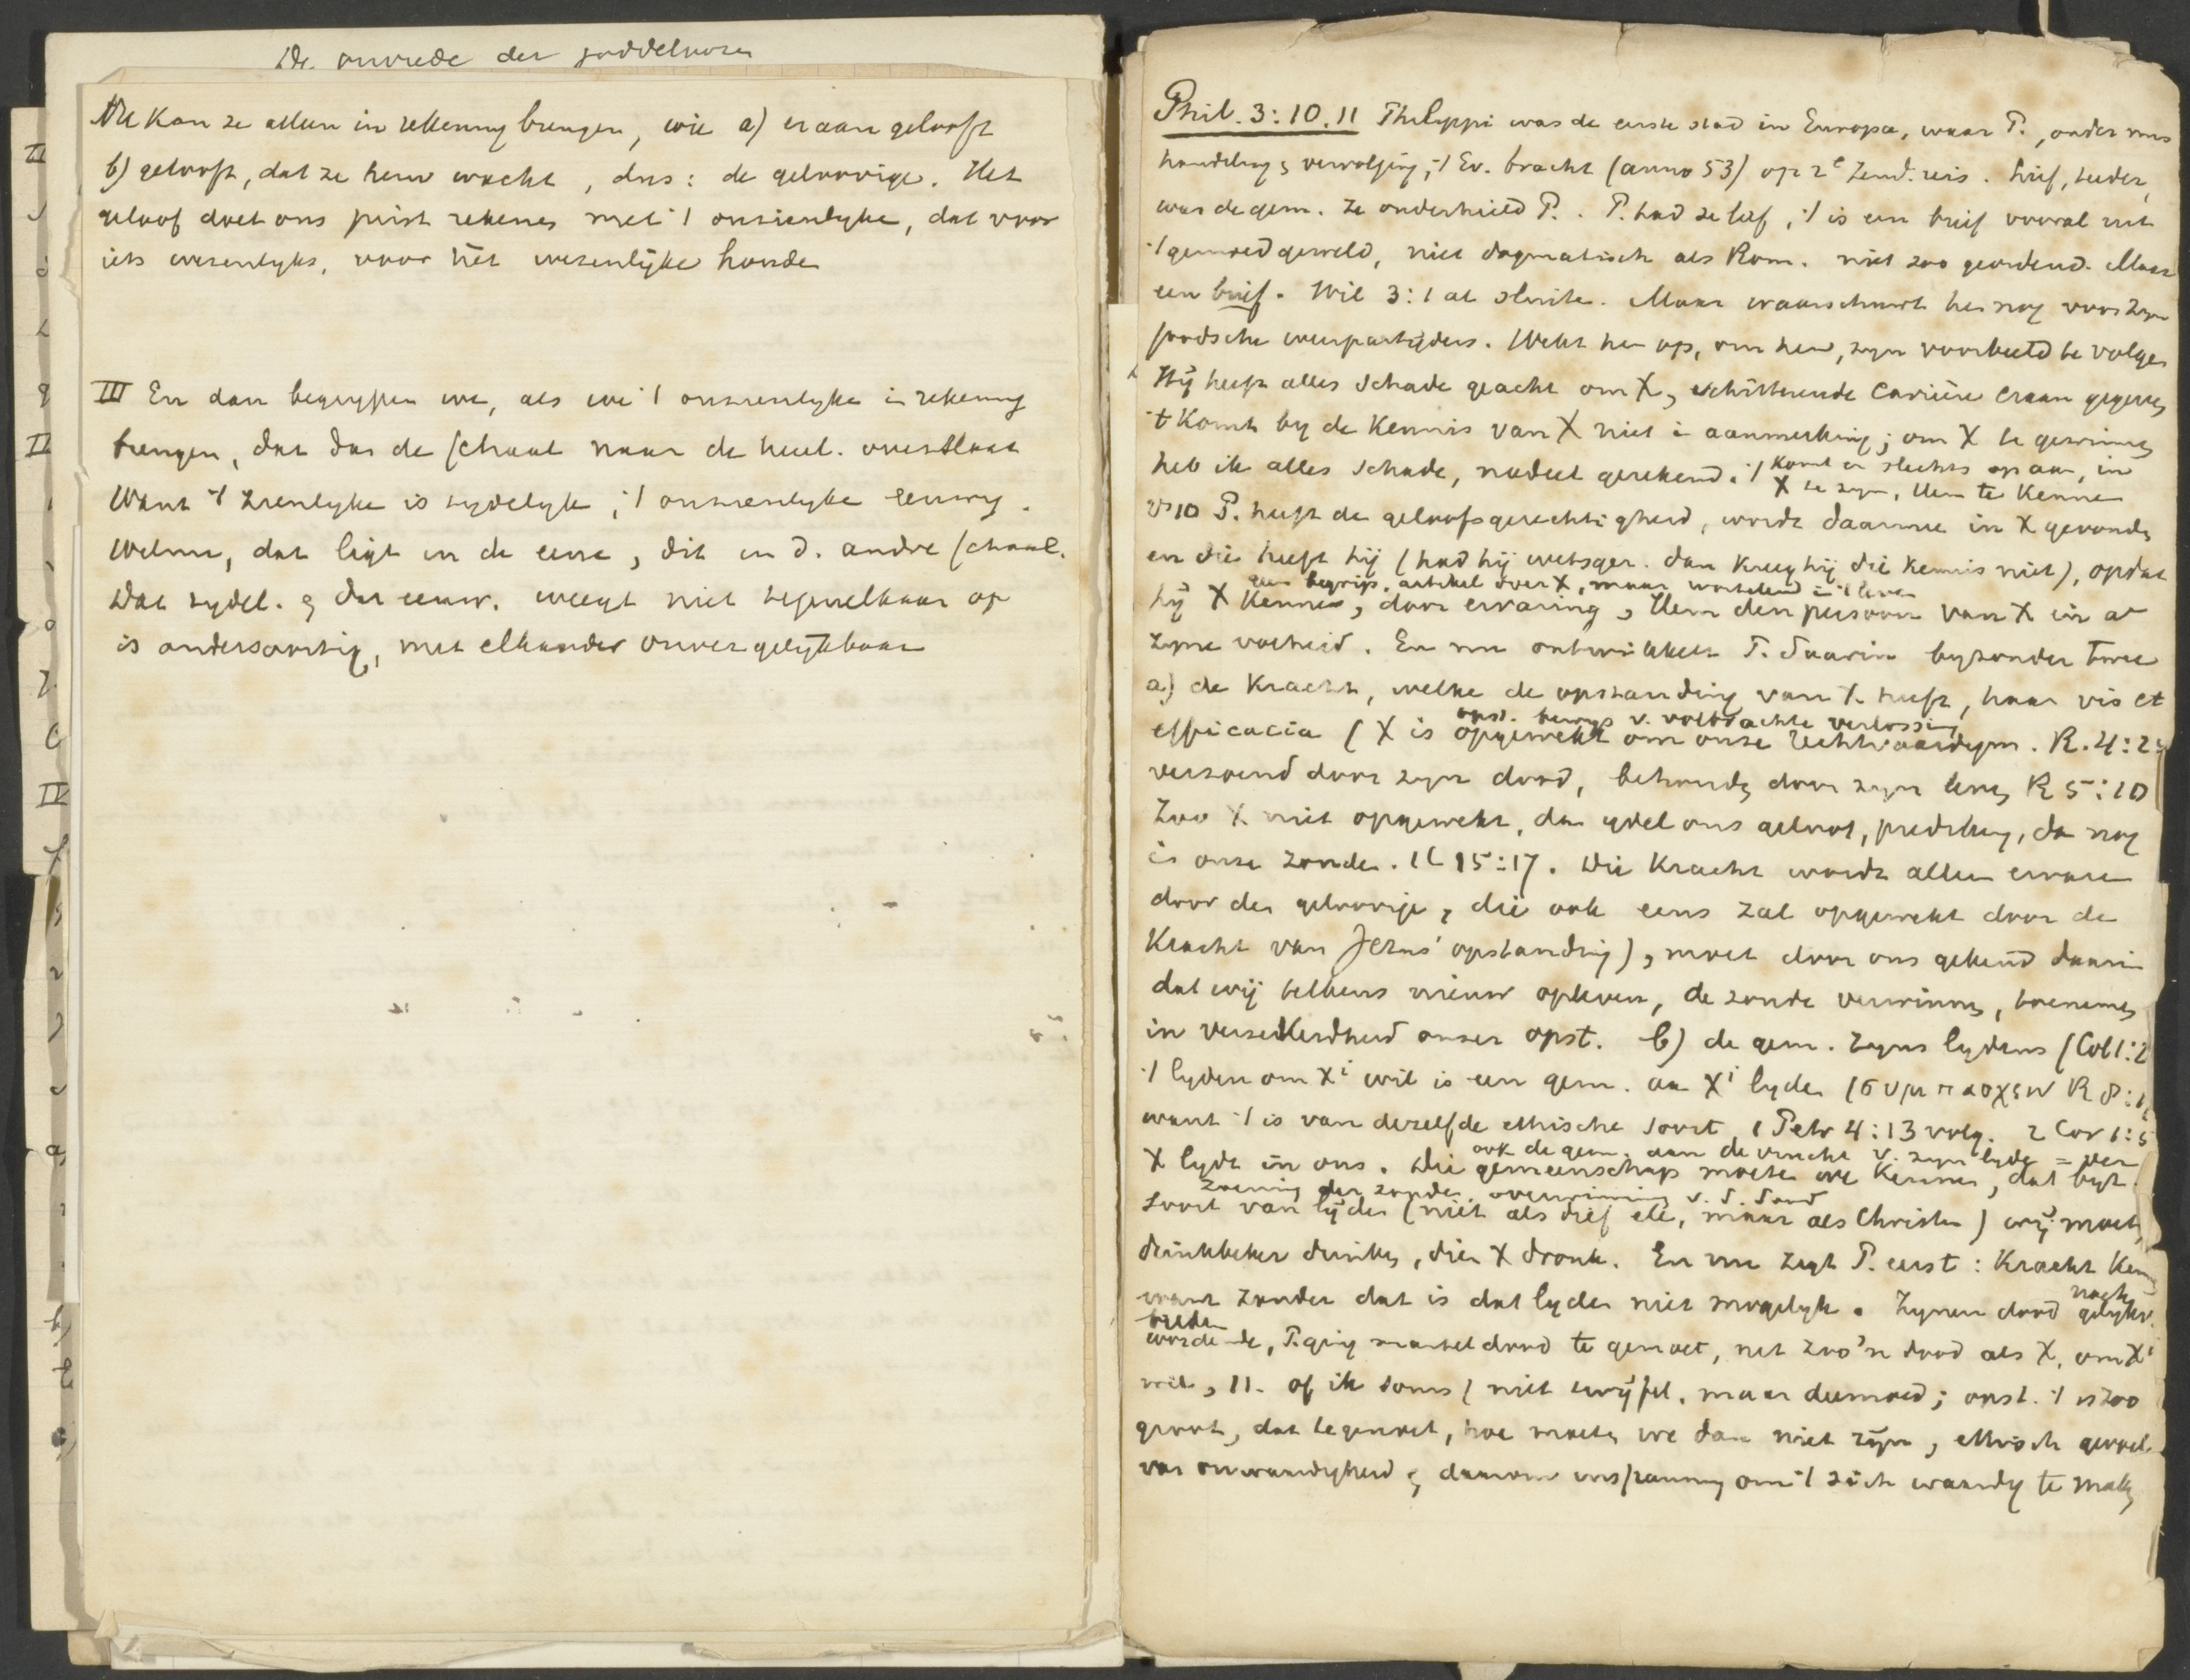 De onvrede der goddeloozen
Nu kan ze alleen in rekening brengen, wie a) eraan gelooft
b) gelooft, dat ze hem wacht, dus: de geloovige. Het
geloof doet ons juist rekenen met 't onzienlyke, dat voor
iets wezenlyks, voor hét wezenlijke houden
III En dan begrypen we, als we 't onzienlyke in rekening
brengen, dat dan de schaal naar de heerl. overslaat
Want 't zienlyke is tydelyk, 't onzienlyke eeuwig.
Welnu, dat ligt in de eene, dit in d. andre schaal.
Dat tydel. en dat eeuw. weegt niet tegen elkaar op
is andersoortig, met elkander onvergelykbaar
II
II
IV
Phil. 3:10.11 Philippi was de eerste stad in Europa, waar P., onder mis
handeling en vervolging, 't Ev. bracht (anno 53) op 2e Zend. reis. Lief, teeder,
was de gem. Ze onderhield P.. P. had ze lief, 't is een brief vooral uit
't gemoed geweld, niet dogmatisch als Rom. niet zoo geordend. Maar
een brief. Wil 3:1 al sluiten. Maar waarschuwt hen nog voor zyn
joodsche weerpartijders. Wekt hen op, om hem, zyn voorbeeld te volgen
Hij heeft alles schade geacht om X, schitterende carrière eraan gegeven,
't Komt by de Kennis van X niet in aanmerking; om X te gewinnen
heb ik alles schade, nadeel gerekend. 't Komt er slechts op aan, in
X te zyn, Hem te Kennen
vs 10 P. heeft de geloofsgerechtigheid, wordt daarmee in X gevonden
en die heeft hij (had hij wetsger. dan kreeg hij die Kennis niet), opdat
geen begrip, artikel over X, maar wortelend in 't leven
hij X Kenne, door ervaring, Hem den persoon van X in al
zyne volheid. En nu ontwikkelt P. daarin byzonder twee
a) de Kracht, welke de opstanding van X. heeft, haar vis et
opst. bewys v. volbrachte verlossing
efficacia (X is opgewekt om onze rechtvaardigm. R. 4:25
verzoend door zyn dood, behouden door zyn leven R 5:10
Zoo X niet opgewekt, dan ydel ons geloof, prediking, dan nog
in onze zonden. 1C 15:17. Die Kracht wordt alleen ervaren
door den geloovige, die ook eens zal opgewekt door de
Kracht van Jezus' opstanding), moet door ons gekend daarin
dat wij telkens nieuw opleven, de zonde verwinnen, toenemen
in verzekerdheid onzer opst. b) de gem. Zyns lydens (Col 1:2
't lyden om Xi wil is een gem. aan Xi lyden (συμπασχειν R 8:1
want 't is van dezelfde ethische soort, 1 Petr 4:13 volg. 2 Cor 1:5
ook de gem. aan de vrucht v. zyn lyden = der
X lydt in ons. Die gemeenschap moeten we Kennen, dat byz.
zoening der zonden, overwinning v. d. dood
soort van lijden (niet als dief etc, maar als Christen) wij moeten
drinkbeker drinken, dien X dronk. En nu zegt P. eerst: Kracht Kennen
want zonder dat is dat lyden niet mogelyk. Zynen dood gelykv.
wordende, P. ging marteldood te gemoet, net zoo'n dood als X, om Xi
wil, 11. of ik soms (niet twijfel, maar deemoed; opst. 't is zoo
groot, dat tegemoet, hoe moeten we dan niet zijn, ethisch gevoel
van onwaardigheid en daarom inspanning om 't zich waardig te maken